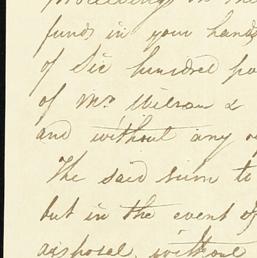 proceeding in the
funds in your hands
of Six hundred po
of Mr. Wilson &
and without any
The said sum to
but in the event of
disposal, without